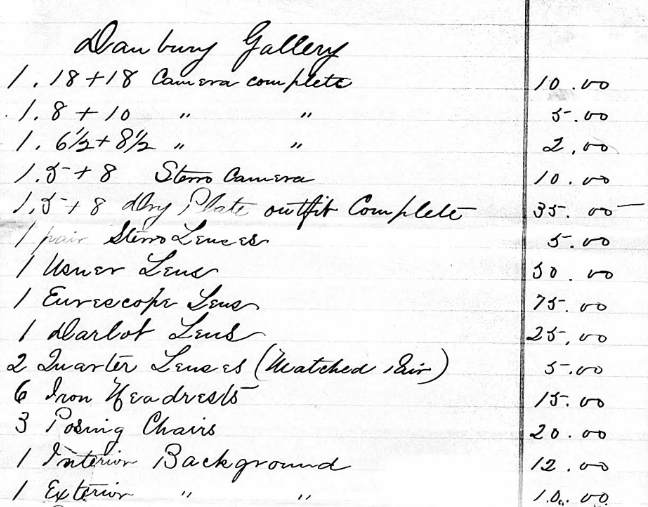 Danbury Gallery
1. 18+18 Camera complete 10.00
1. 8 + 10 " " 5.00
1. 6½+8½ " " 2.00
1. 5+8 Stereo Camera 10.00
1. 5+8 dry Plate outfit Complete 35.00
1 pair Stereo Lenses 5.00
1 Lens 50.00
1 Eurescope Lens 75.00
1 Darlot Lens 25.00
2 Quarter Lenses (Matched Pair) 5.00
6 Iron Headrests 15.00
3 Posing Chairs 20.00
1 Interior Background 12.00
1 Exterior " " 10.00